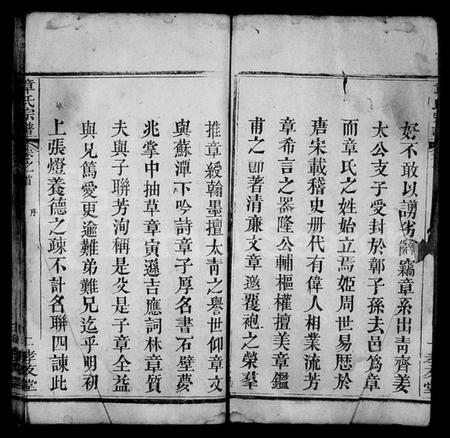 好不敢以謭劣辭竊章系出青齊姜
太公支子受封於鄣子孫去邑爲章
而章氏之姓始立焉姬周世易歷於
唐宋載稽史册代有偉人相業流芳
章希言之器隆公輔樞權擅美章鑑
甫之卽著清亷文章邀覆袍之榮羣
推章綬翰墨擅太青之譽世仰章文
與蘇潭下吟詩章子厚名書石壁夢
兆掌中抽草章寅遜吉應詞林章質
夫與子聯芳洵稱是父是子章全益
與兄篤愛更逾難弟難兄迄乎明初
上張燈養德之疎不計名聯四諫此
章氏宗譜
序
二 孝友堂